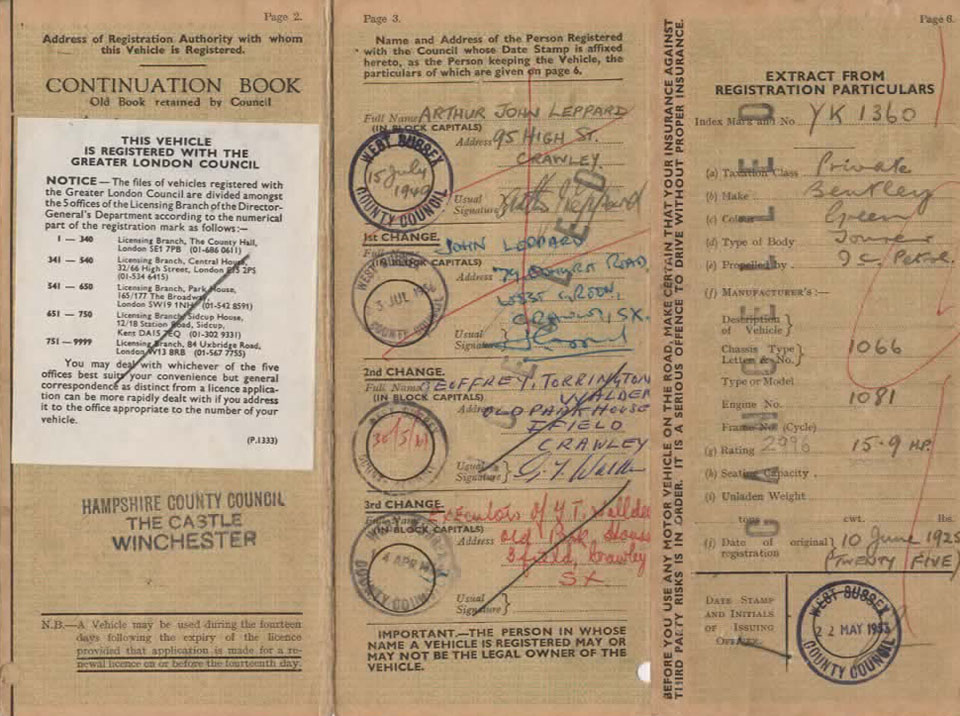 Page 2.
Address of Registration Authority with whom
this Vehicle is Registered.
CONTINUATION BOOK
Old Book retained by Council
THIS VEHICLE
IS REGISTERED WITH THE
GREATER LONDON COUNCIL
NOTICE — The files of vehicles registered with
the Greater London Council are divided amongst
the 5 offices of the Licensing Branch of the Director-
General's Department according to the numerical
part of the registration mark as follows:—
1 — 340 Licensing Branch, The County Hall,
London SE1 7PB (01-686 0611)
341 — 540 Licensing Branch, Central House,
32/66 High Street, London E15 2PS
(01-534 6415)
541 — 650 Licensing Branch, Park House,
165/177 The Broadway,
London SW19 1NH (01-542 8591)
651 — 750 Licensing Branch, Sidcup House,
12/18 Station Road, Sidcup,
Kent DA15 7EQ (01-302 9331)
751 — 9999 Licensing Branch, 84 Uxbridge Road,
London W13 8RB (01-567 7755)
You may deal with whichever of the five
offices best suits your convenience but general
correspondence as distinct from a licence applica-
tion can be more rapidly dealt with if you address
it to the office appropriate to the number of your
vehicle.
(P.1333)
HAMPSHIRE COUNTY COUNCIL
THE CASTLE
WINCHESTER
N.B.—A Vehicle may be used during the fourteen
days following the expiry of the licence
provided that application is made for a re-
newal licence on or before the fourteenth day.
Page 3.
Name and Address of the Person Registered
with the Council whose Date Stamp is affixed
hereto, as the Person keeping the Vehicle, the
particulars of which are given on page 6.
Full Name ARTHUR JOHN LEPPARD
(IN BLOCK CAPITALS)
Address 95 HIGH ST.
CRAWLEY.
WEST SUSSEX
15 July
1949
COUNTY COUNCIL
Usual
Signature
1st CHANGE.
JOHN LEPPARD
(IN BLOCK CAPITALS)
Address 79 ROAD
WEST GREEN,
CRAWLEY, SX.
3 JUL
Usual
Signature
2nd CHANGE.
Full Name GEOFFREY, TORRINGTON
WALDER
(IN BLOCK CAPITALS)
Address OLD PARK HOUSE
IFIELD
CRAWLEY
30/5/61
Usual
Signature G. T. Walder
3rd CHANGE.
Full Name Executors of
(IN BLOCK CAPITALS)
Address Old Park House
Ifield, Crawley
SX
4 APR
COUNTY COUNCIL
Usual
Signature
IMPORTANT.—THE PERSON IN WHOSE
NAME A VEHICLE IS REGISTERED MAY OR
MAY NOT BE THE LEGAL OWNER OF THE
VEHICLE.
BEFORE YOU USE ANY MOTOR VEHICLE ON THE ROAD, MAKE CERTAIN THAT YOUR INSURANCE AGAINST
THIRD PARTY RISKS IS IN ORDER. IT IS A SERIOUS OFFENCE TO DRIVE WITHOUT PROPER INSURANCE.
Page 6.
EXTRACT FROM
REGISTRATION PARTICULARS
Index Mark and No YK 1360
(a) Taxation Class Private
(b) Make Bentley
(c) Colour Green
(d) Type of Body Tourer
(e) Propelled by I.C. Petrol
(f) MANUFACTURER'S:—
Description
of Vehicle
Chassis Type
Letter & No. 1066
Type or Model
Engine No. 1081
Frame No. (Cycle)
(g) Rating 2996 15·9 HP.
(h) Seating Capacity
(i) Unladen Weight
tons cwt. lbs.
(j) Date of original
registration 10 June 1925
(TWENTY FIVE)
CANCELLED
DATE STAMP
AND INITIALS
OF ISSUING
OFFICER
WEST SUSSEX
22 MAY 1953
COUNTY COUNCIL